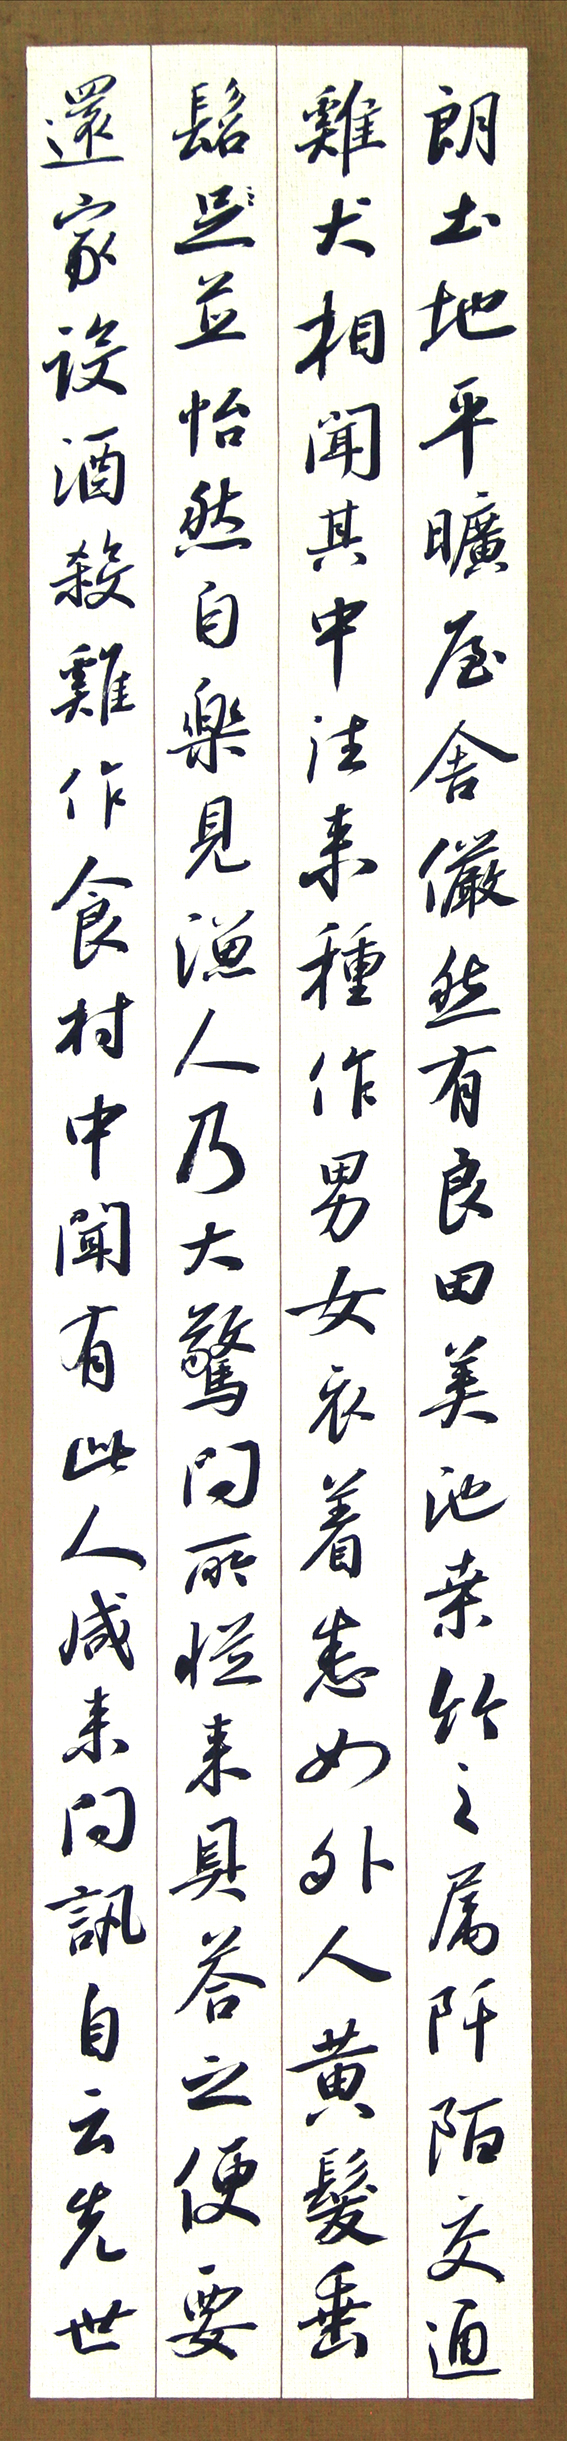 朗土地平曠屋舍儼然有良田美池桒竹之属阡陌交通
雞犬相聞其中往来種作男女衣着悉如外人黄髮垂
髫是並怡然自樂見漁人乃大驚問所從来具答之便要
還家設酒殺雞作食村中聞有此人咸来問訊自云先世